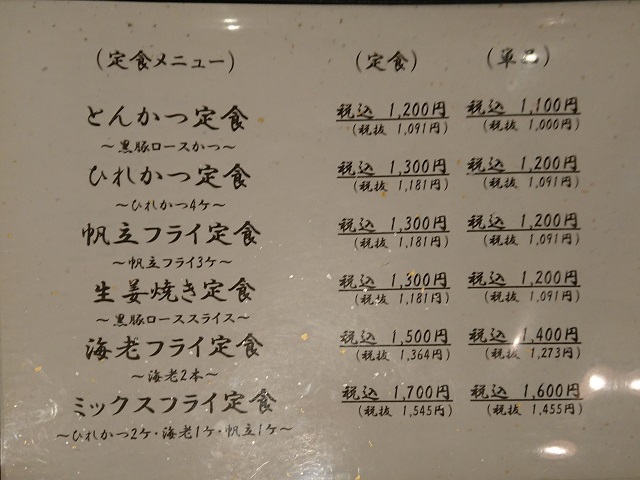 (定食メニュー) (定食) (単品)
とんかつ定食 税込 1,200円 税込 1,100円
～黒豚ロースかつ～ (税抜 1,091円) (税抜 1,000円)
ひれかつ定食 税込 1,300円 税込 1,200円
～ひれかつ4ケ～ (税抜 1,181円) (税抜 1,091円)
帆立フライ定食 税込 1,300円 税込 1,200円
～帆立フライ3ケ～ (税抜 1,181円) (税抜 1,091円)
生姜焼き定食 税込 1,300円 税込 1,200円
～黒豚ローススライス～ (税抜 1,181円) (税抜 1,091円)
海老フライ定食 税込 1,500円 税込 1,400円
～海老2本～ (税抜 1,364円) (税抜 1,273円)
ミックスフライ定食 税込 1,700円 税込 1,600円
～ひれかつ2ケ・海老1ケ・帆立1ケ～ (税抜 1,545円) (税抜 1,455円)